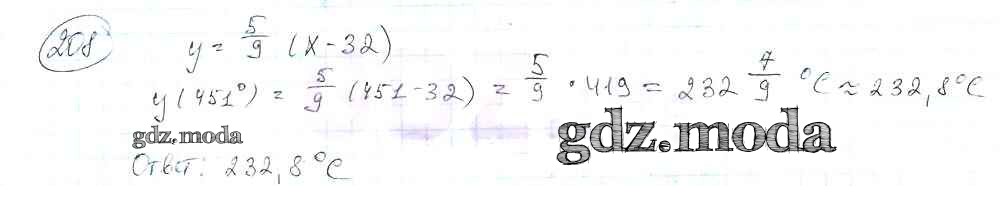 208 y = 5/9 (x - 32)
y (451°) = 5/9 (451 - 32) = 5/9 · 419 = 232 7/9 °C ≈ 232,8°C
gdz.moda
gdz.moda
Ответ: 232,8°C